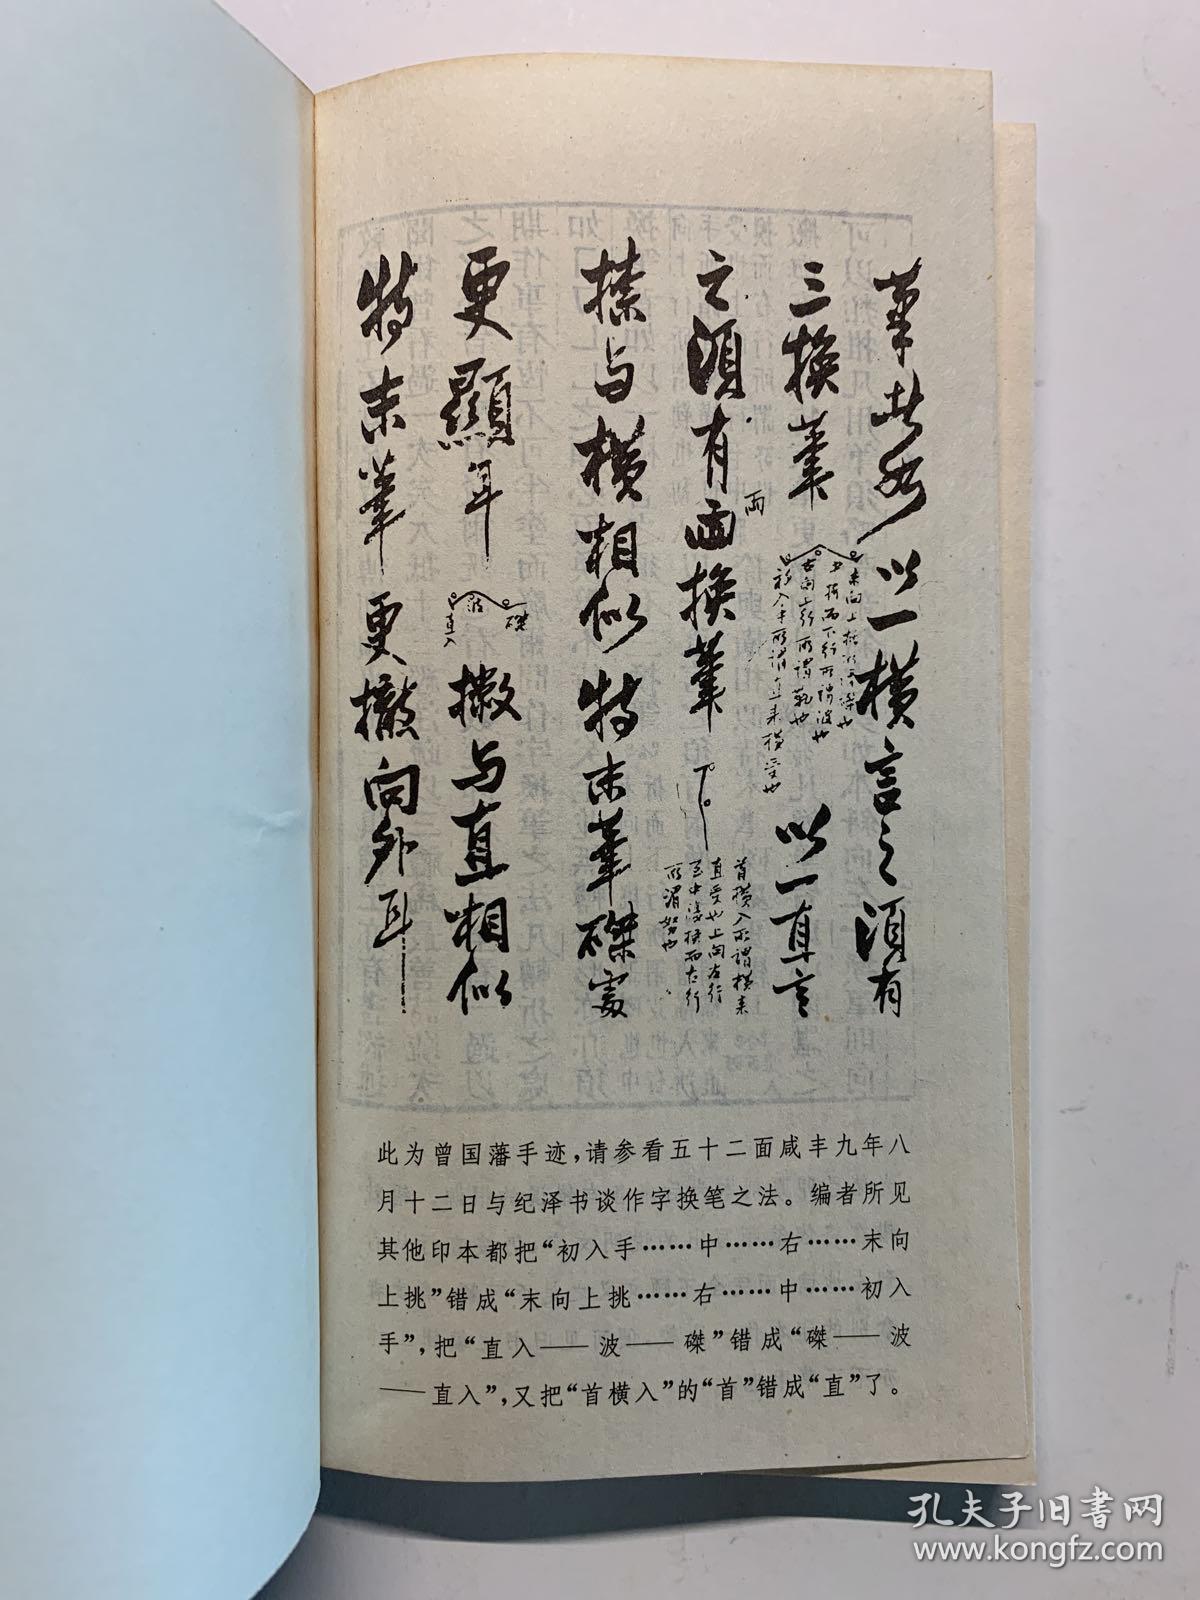 筆此如以一橫言之須有
三換筆
末向上挑所謂磔也
中折而下行所謂波也
右向上行所謂勒也
初入手所謂直來橫受也
以一直言
之須有兩換筆
兩
首橫入所謂橫來
直受也上向左行
至中渡換而右行
所謂努也
捺与橫相似特末筆磔處
更顯耳
磔
波
直入
撇与直相似
特末筆更撇向外耳
此为曾国藩手迹,请参看五十二面咸丰九年八
月十二日与纪泽书谈作字换笔之法。编者所见
其他印本都把“初入手……中……右……末向
上挑”错成“末向上挑……右……中……初入
手”,把“直入——波——磔”错成“磔——波
——直入”,又把“首横入”的“首”错成“直”了。
孔夫子旧书网
www.kongfz.com